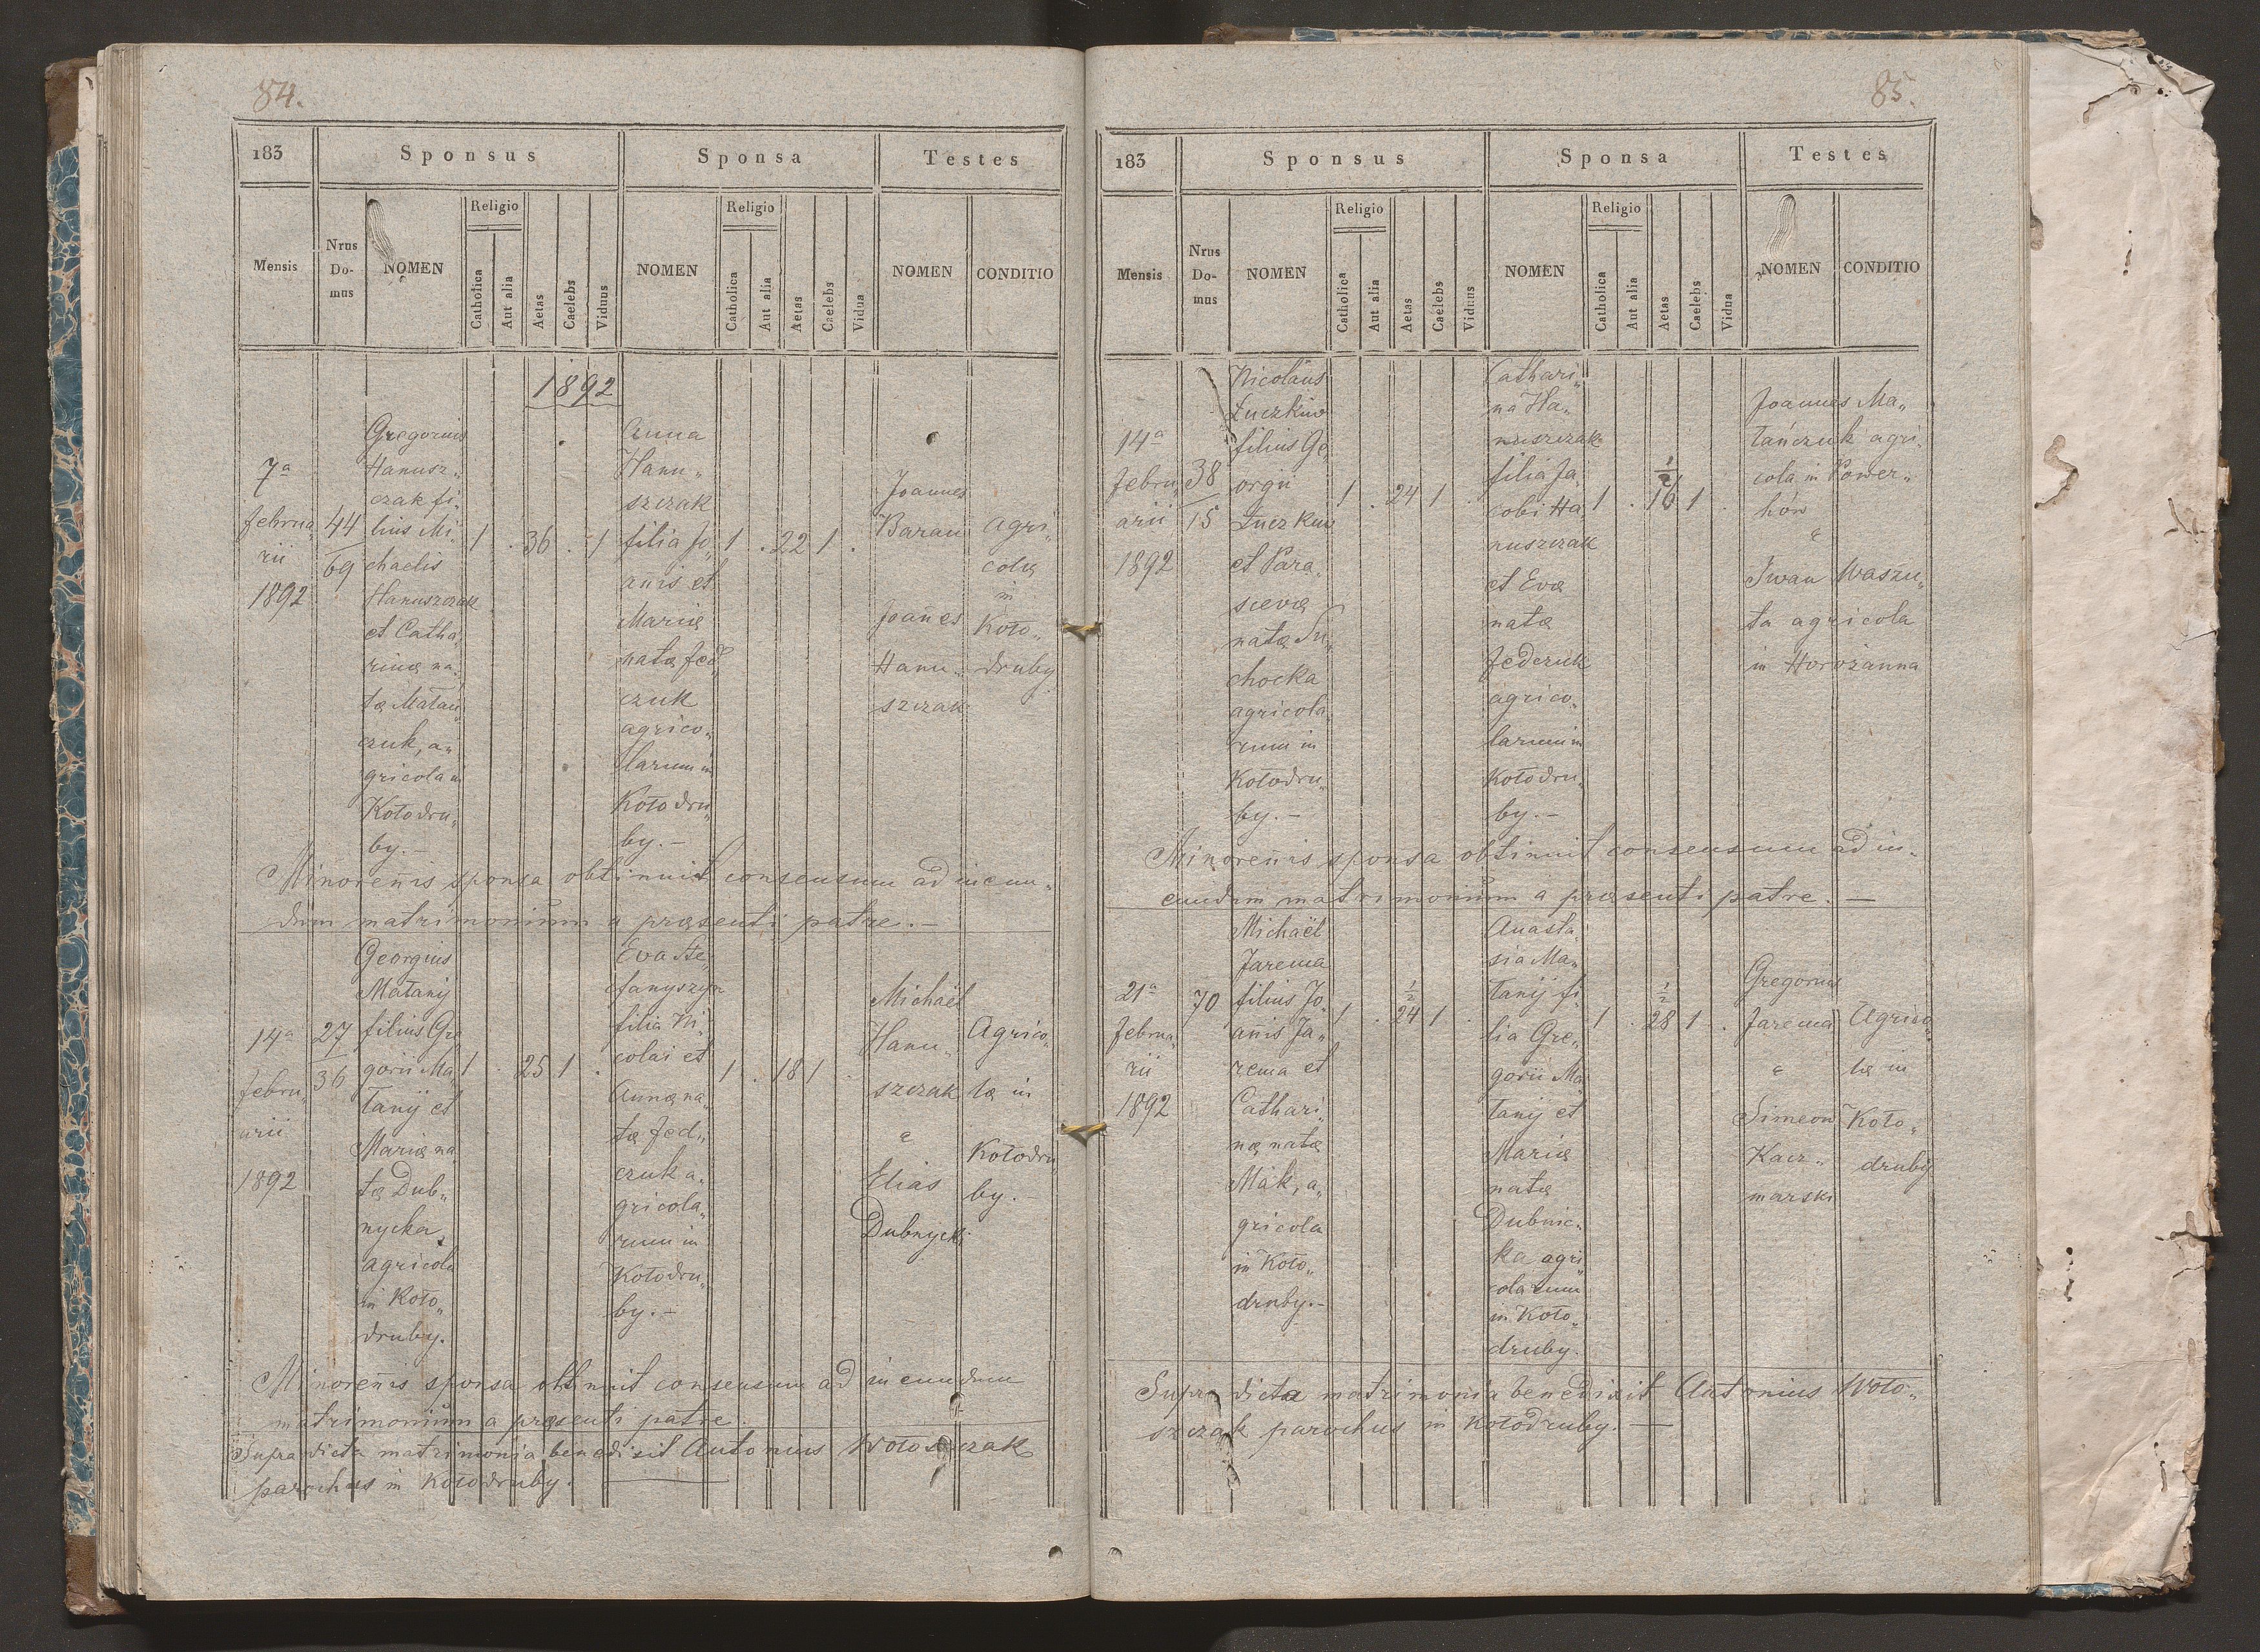 84.
183
Sponsus
Sponsa
Testes
Mensis
Nrus Do- mus
NOMEN
Religio
Catholica
Aut alia
Aetas
Caelebs
Viduus
NOMEN
Religio
Catholica
Aut alia
Aetas
Caelebs
Vidua
NOMEN
CONDITIO
1892
7a
februa„
rii
1892
44
69
Gregorius
Hanusz„
czak fi„
lius Mi„
chaelis
Hanuszczak
et Catha„
rinæ na„
tæ Matań„
czuk, a„
gricola in
Kołodru„
by.–
1 . 36 . 1
Anna
Hanu„
szczak
filia Jo„
annis et
Mariæ
natæ Fed„
czuk
agrico„
larum in
Kołodru„
by.–
1 . 22 1 .
Joannes
Baran
Joannes
Hanu„
szczak
Agri„
colæ
in
Koło„
druby
Minorennis sponsa obtinuit consensum ad ineun„
dum matrimonium a præsenti patre.–
14a
febru„
arii
1892
27
36
Georgius
Matanij
filius Gre„
gorii Ma„
tanij et
Mariæ na„
tæ Dub„
nycka,
agricola
in Koło„
druby.
1 . 25 1 .
Eva Ste„
fanyszyn
filia Ni„
colai et
Annæ na„
tæ Fed„
czuk a„
gricola„
rum in
Kołodru„
by.–
1 . 18 1 .
Michaël
Hanu„
szczak
e
Elias
Dubnycki
Agrico„
læ in
Kołodru„
by.–
Minorennis sponsa obtinuit consensum ad ineundum
matrimonium a præsenti patre.
Supra dicta matrimonia benedixit Antonius Wołoszczak
parochus in Kołodruby.
85.
183
Sponsus
Sponsa
Testes
Mensis
Nrus Do- mus
NOMEN
Religio
Catholica
Aut alia
Aetas
Caelebs
Viduus
NOMEN
Religio
Catholica
Aut alia
Aetas
Caelebs
Vidua
NOMEN
CONDITIO
14a
febru„
arii
1892
38
15
Nicolaus
Łuczkiw
filius Ge„
orgii
Łuczkiw
et Para„
scevæ
natæ Su„
chocka
agricola„
rum in
Kołodru„
by.–
1 . 24 1 .
Cathari„
na Ha„
nuszczak
filia Ja„
cobi Ha„
nuszczak
et Evæ
natæ
Fedczuk
agrico„
larum in
Kołodru„
by.–
1 . 16 1/2 1 .
Joannes Ma„
tańczuk agri„
cola in Power„
hów
e
Iwan Waszu„
ta agricola
in Horożanna
Minorennis sponsa obtinuit consensum ad in„
eundum matrimonium a præsenti patre.–
21a
februa„
rii
1892
70
Michaël
Jarema
filius Jo„
annis Ja„
rema et
Cathari„
næ natæ
Mak, a„
gricola
in Koło„
druby.–
1 . 24 1/2 1 .
Anasta„
sia Ma„
tanij fi„
lia Gre„
gorii Ma„
tanij et
Mariæ
natæ
Dubnic„
ka agri„
colarum
in Koło„
druby.
1 . 28 1/2 1 .
Gregorius
Jarema
e
Simeon
Kacz„
marski
Agrico„
læ in
Koło„
druby
Supra dicta matrimonia benedixit Antonius Woło„
szczak parochus in Kołodruby.–